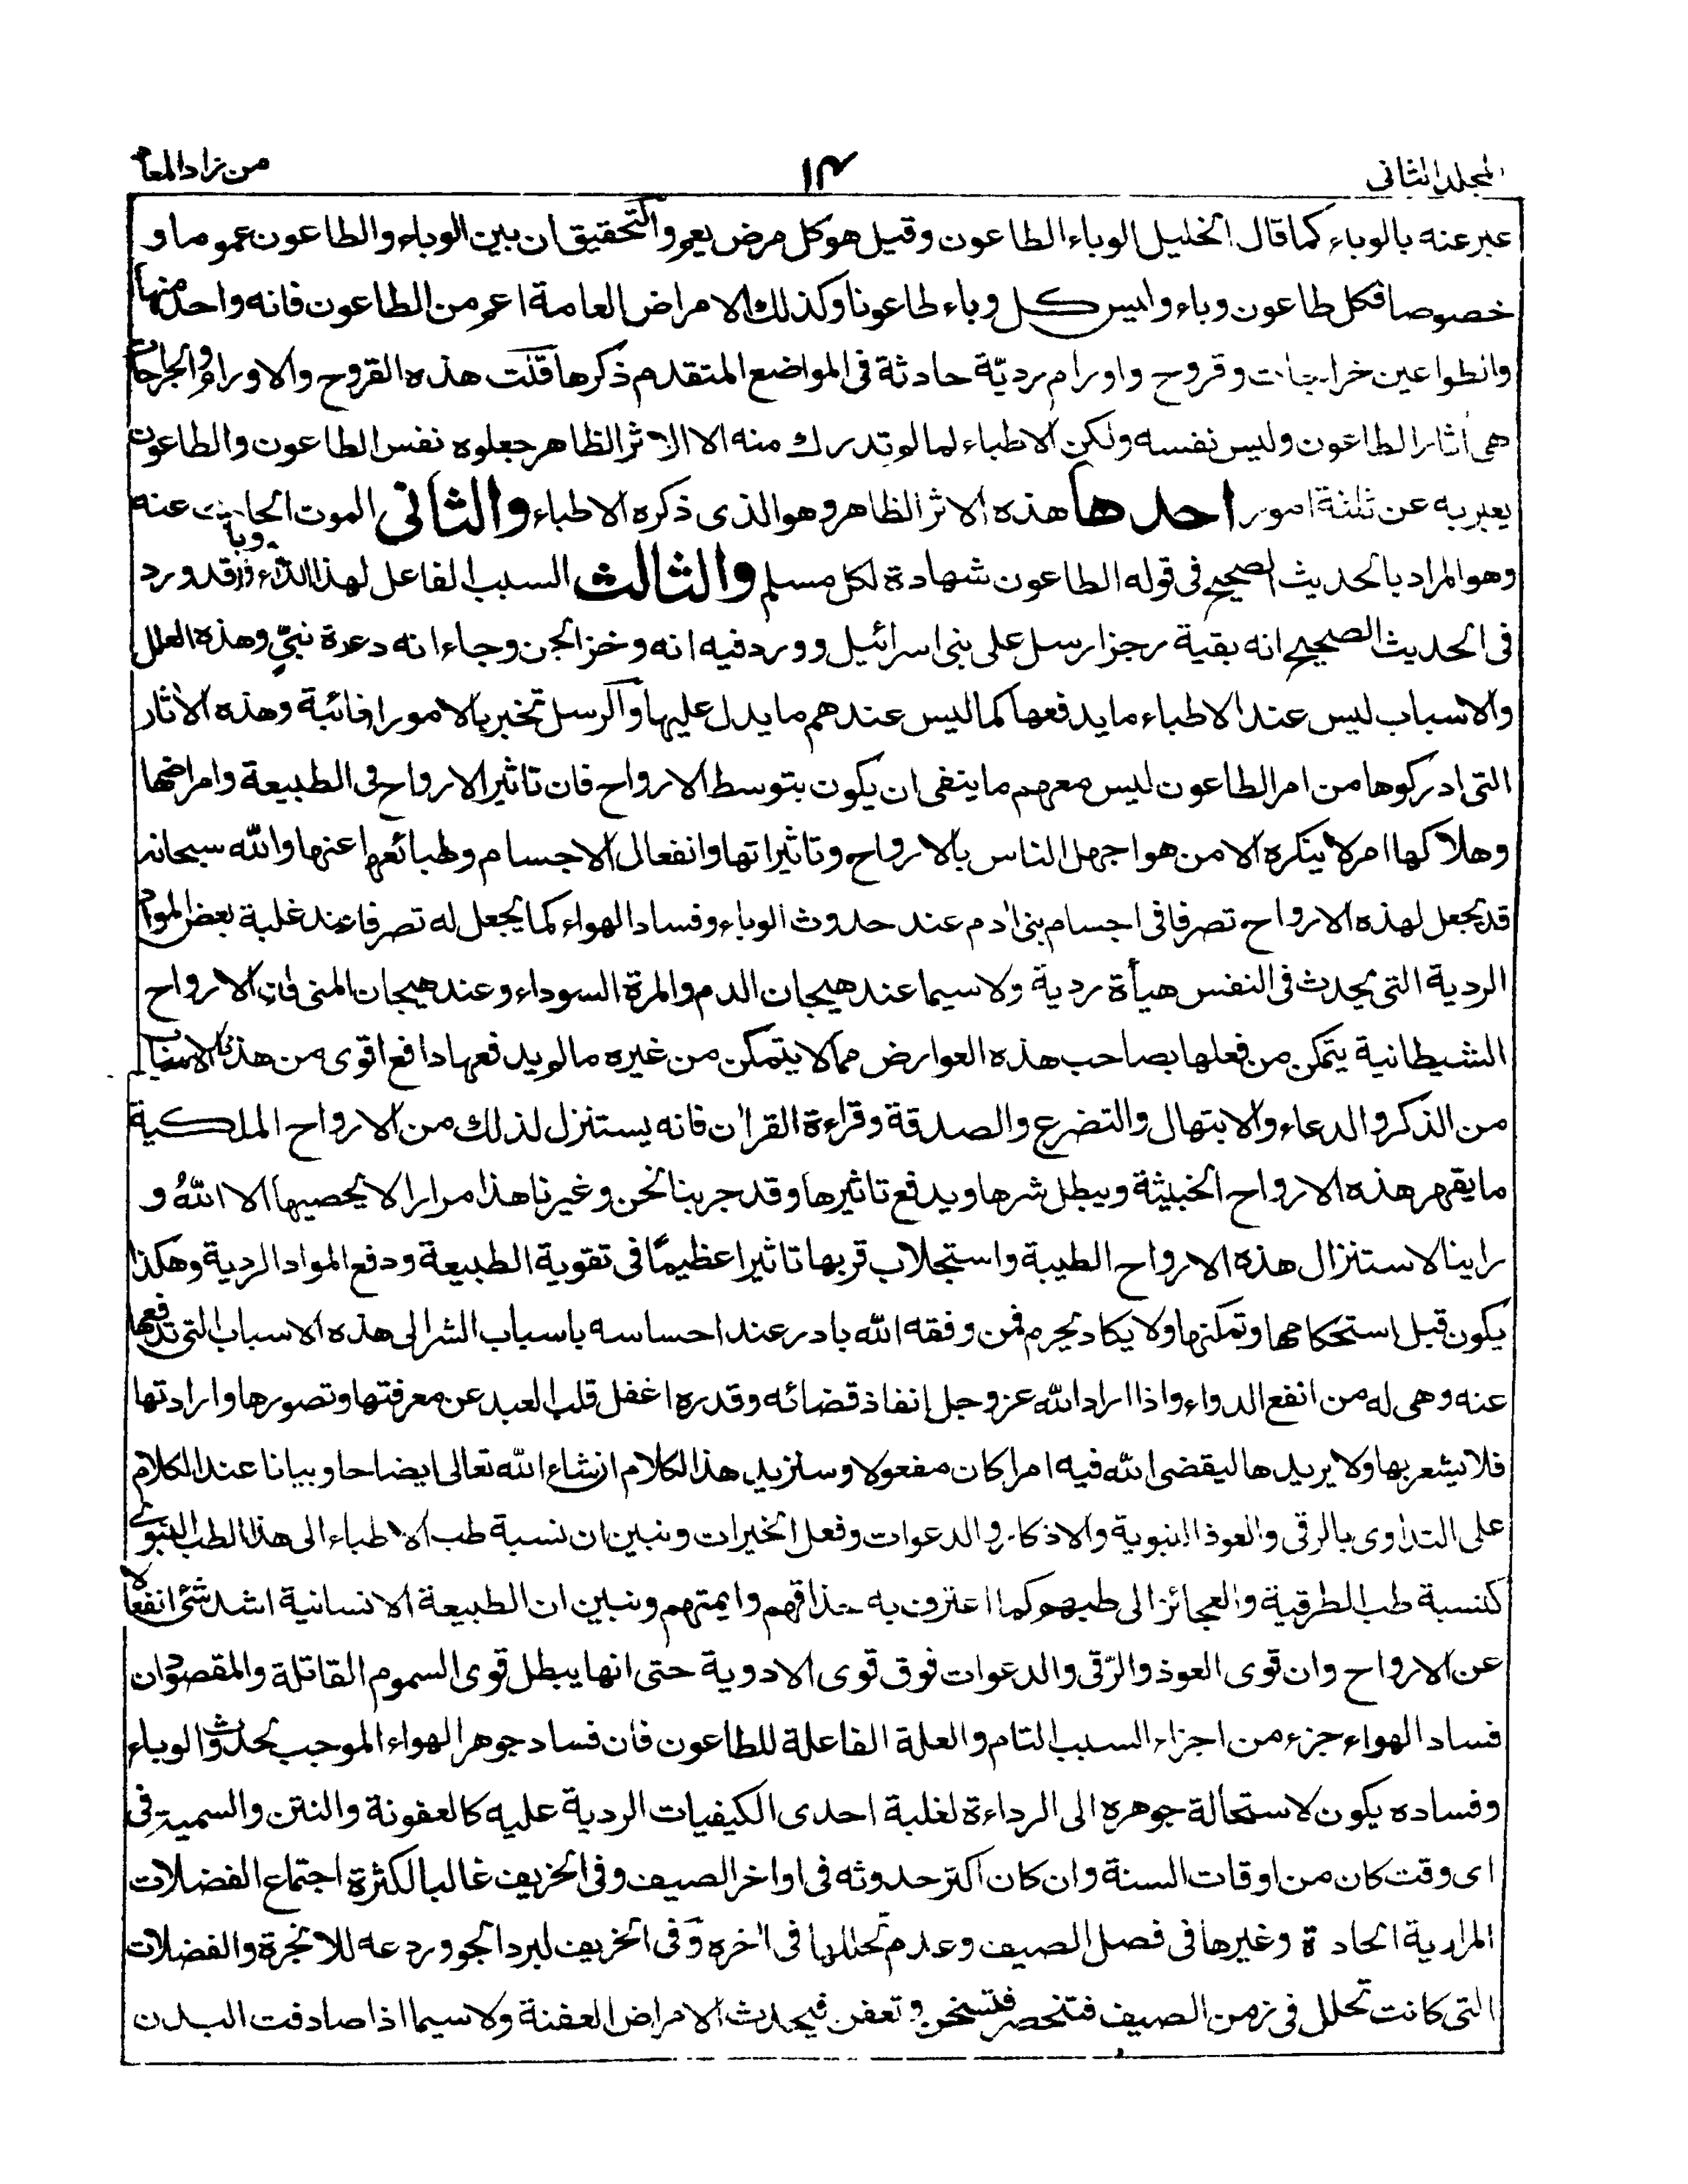 المجلد الثانى
١٤
من زاد المعاد
عبر عنه بالوباء كما قال الخليل الوباء الطاعون وقيل هو كل مرض يعم والتحقيق ان بين الوباء والطاعون عموما و
خصوصا فكل طاعون وباء وليس كل وباء طاعونا وكذلك الامراض العامة اعم من الطاعون فانه واحد منها
والطواعين خراجات وقروح واورام رديّة حادثة فى المواضع المتقدم ذكرها قلت هذه القروح والاورام والجراحات
هى اثار الطاعون وليس نفسه ولكن الاطباء لما لم تدرك منه الا الاثر الظاهر جعلوه نفس الطاعون والطاعون
يعبر به عن ثلثة امور احدها هذه الاثر الظاهر وهو الذى ذكره الاطباء والثانى الموت الحادث عنه
وهو المراد بالحديث الصحيح فى قوله الطاعون شهادة لكل مسلم والثالث السبب الفاعل لهذا الداء وقد ورد
فى الحديث الصحيح انه بقية رجز ارسل على بنى اسرائيل وورد فيه انه وخز الجن وجاء انه دعوة نبىّ وهذه العلل
والاسباب ليس عند الاطباء ما يدفعها كما ليس عندهم ما يدل عليها والرسل تخبر بالامور الغائبة وهذه الاثار
التى ادركوها من امر الطاعون ليس معهم ما ينفى ان يكون بتوسط الارواح فان تاثير الارواح فى الطبيعة وامراضها
وهلاكها امر لا ينكره الا من هو اجهل الناس بالارواح وتاثيراتها وانفعال الاجسام وطبائعها عنها والله سبحانه
قد يجعل لهذه الارواح تصرفا فى اجسام بنى ادم عند حدوث الوباء وفساد الهواء كما يجعل له تصرفا عند غلبة بعض المواد
الردية التى يحدث فى النفس هيأة ردية ولا سيما عند هيجان الدم والمرة السوداء وعند هيجان المنى فان الارواح
الشيطانية يتمكن من فعلها بصاحب هذه العوارض مما لا يتمكن من غيره ما لم يدفعها دافع اقوى من هذه الاسباب
من الذكر والدعاء والابتهال والتضرع والصدقة وقراءة القران فانه يستنزل لذلك من الارواح الملكية
ما يقهر هذه الارواح الخبيثة ويبطل شرها ويدفع تاثيرها وقد جربنا نحن وغيرنا هذا مرارا لا يحصيها الا اللهُ و
راينا لاستنزال هذه الارواح الطيبة واستجلاب قربها تاثيرا عظيمًا فى تقوية الطبيعة ودفع المواد الردية وهكذا
يكون قبل استحكامها وتمكنها ولا يكاد يخرم فمن وفقه الله بادر عند احساسه باسباب الشر الى هذه الاسباب التى تدفعها
عنه وهى له من انفع الدواء واذا اراد الله عز وجل انفاذ قضائه وقدره اغفل قلب العبد عن معرفتها وتصورها وارادتها
فلا يشعر بها ولا يريدها ليقضى الله فيه امرا كان مفعولا وسنزيد هذا الكلام انشاء الله تعالى ايضاحا وبيانا عند الكلام
على التداوى بالرقى والعوذ النبوية والاذكار والدعوات وفعل الخيرات ونبين ان نسبة طب الاطباء الى هذا الطب النبوى
كنسبة طب الطرقية والعجائز الى طبهم كما اعترف به حذاقهم وايمتهم ونبين ان الطبيعة الانسانية اشد شئ انفعالا
عن الارواح وان قوى العوذ والرّقى والدعوات فوق قوى الادوية حتى انها يبطل قوى السموم القاتلة والمقصود ان
فساد الهواء جزء من اجزاء السبب التام والعلة الفاعلة للطاعون فان فساد جوهر الهواء الموجب لحدوث الوباء
وفساده يكون لاستحالة جوهره الى الرداءة لغلبة احدى الكيفيات الردية عليه كالعفونة والنتن والسمية فى
اى وقت كان من اوقات السنة وان كان اكثر حدوثه فى اواخر الصيف وفى الخريف غالبا لكثرة اجتماع الفضلات
المرارية الحادة وغيرها فى فصل الصيف وعدم تحللها فى اخره وفى الخريف لبرد الجو وردعه للابخرة والفضلات
التى كانت تحلل فى زمن الصيف فتنحصر فتسخن وتعفن فيحدث الامراض العفنة ولا سيما اذا صادفت البدن